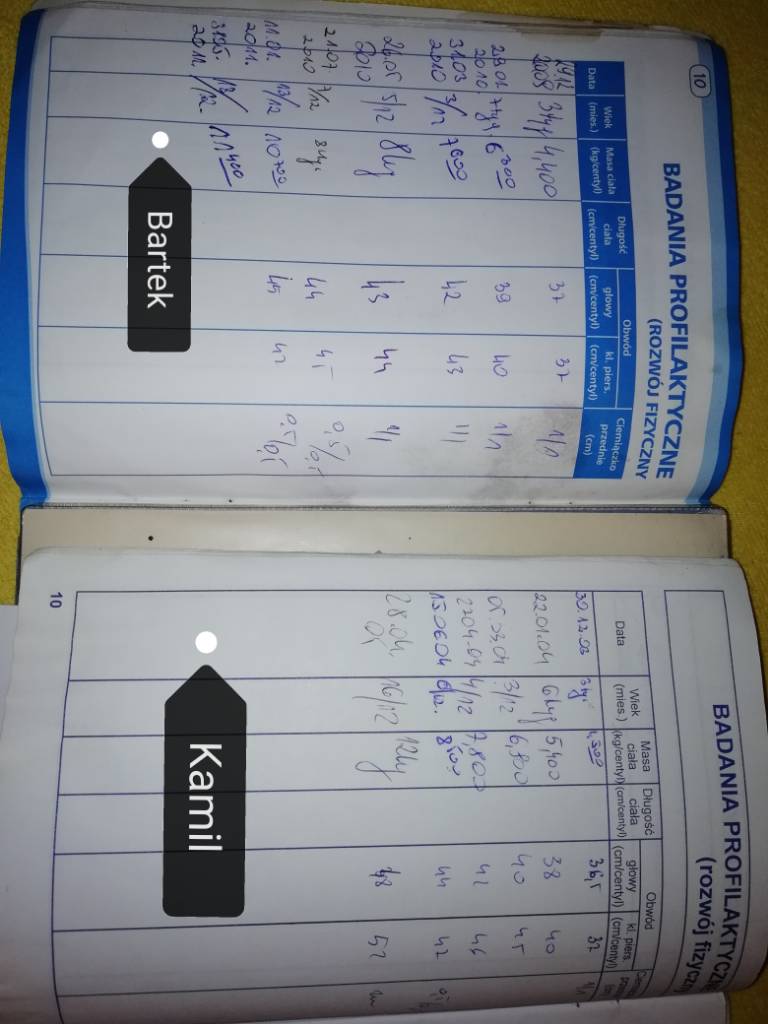 10
BADANIA PROFILAKTYCZNE
(ROZWÓJ FIZYCZNY
Data
Wiek
(mies.)
Masa ciała
(kg/centyl)
Długość
ciała
(cm/centyl)
Obwód
głowy
(cm/centyl)
kl. piers.
(cm/centyl)
Ciemiączko
przednie
(cm)
4,400 37 37 1/1
29.01. 2010. 6300 39 40 1/1
31.03 2010 3/12 7000 42 43 1/1
26.05 2010 5/12 8kg 43 44 1/1
21.07 2010 7/12 44 45 0,5/0,5
11.01. 2011. 13/12 10700 45 47 0,5/0,5
2011. 11400
Bartek
BADANIA PROFILAKTYCZN
(rozwój fizyczn
Data
Wiek
(mies.)
Masa
ciała
(kg/centyl)
Długość
ciała
(cm/centyl)
Obwód
głowy
(cm/centyl)
kl. piers.
(cm/centyl)
30.12.03 36,5 37 1/1
22.01.04 5,400 38 40
3/12 40 45
27.04.04 4/12 7,800 42 46
15.06.04 44 47
28.04. 05 16/12 12kg 48 52
10
Kamil